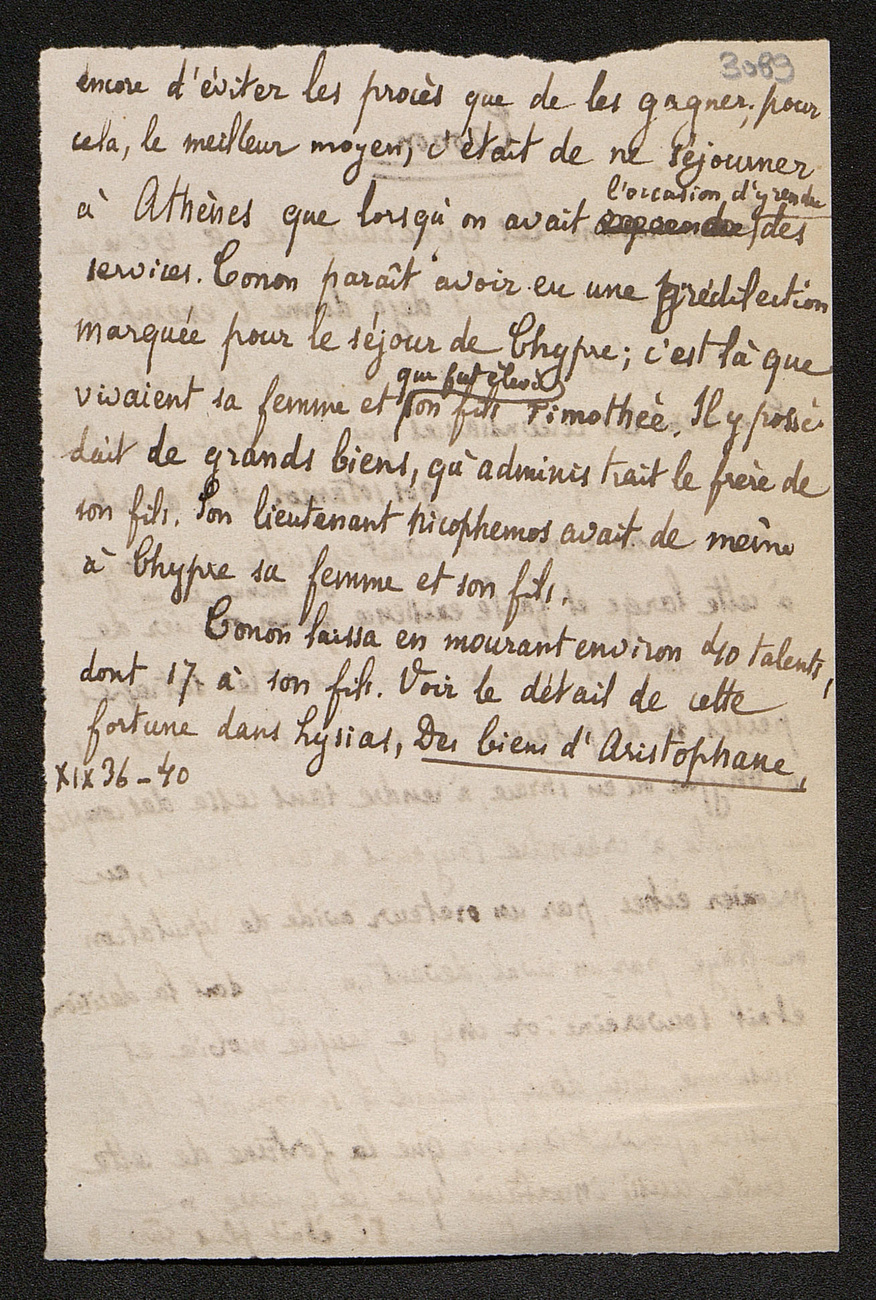 3089
encore d'éviter les procès que de les gagner; pour
cela, le meilleur moyen, c'était de ne séjourner
l'occasion d'y rendre
à Athènes que lorsqu'on avait des
services. Conon paraît avoir eu une prédilection
marquée pour le séjour de Chypre; c'est là que
que fut élevé
vivaient sa femme et son fils Timothée. Il y possé-
dait de grands biens, qu'administrait le frère de
son fils. Son lieutenant Nicophemos avait de même
à Chypre sa femme et son fils.
Conon laissa en mourant environ 40 talents,
dont 17 à son fils. Voir le détail de cette
fortune dans Lysias, Des biens d'Aristophane,
XIX 36-40